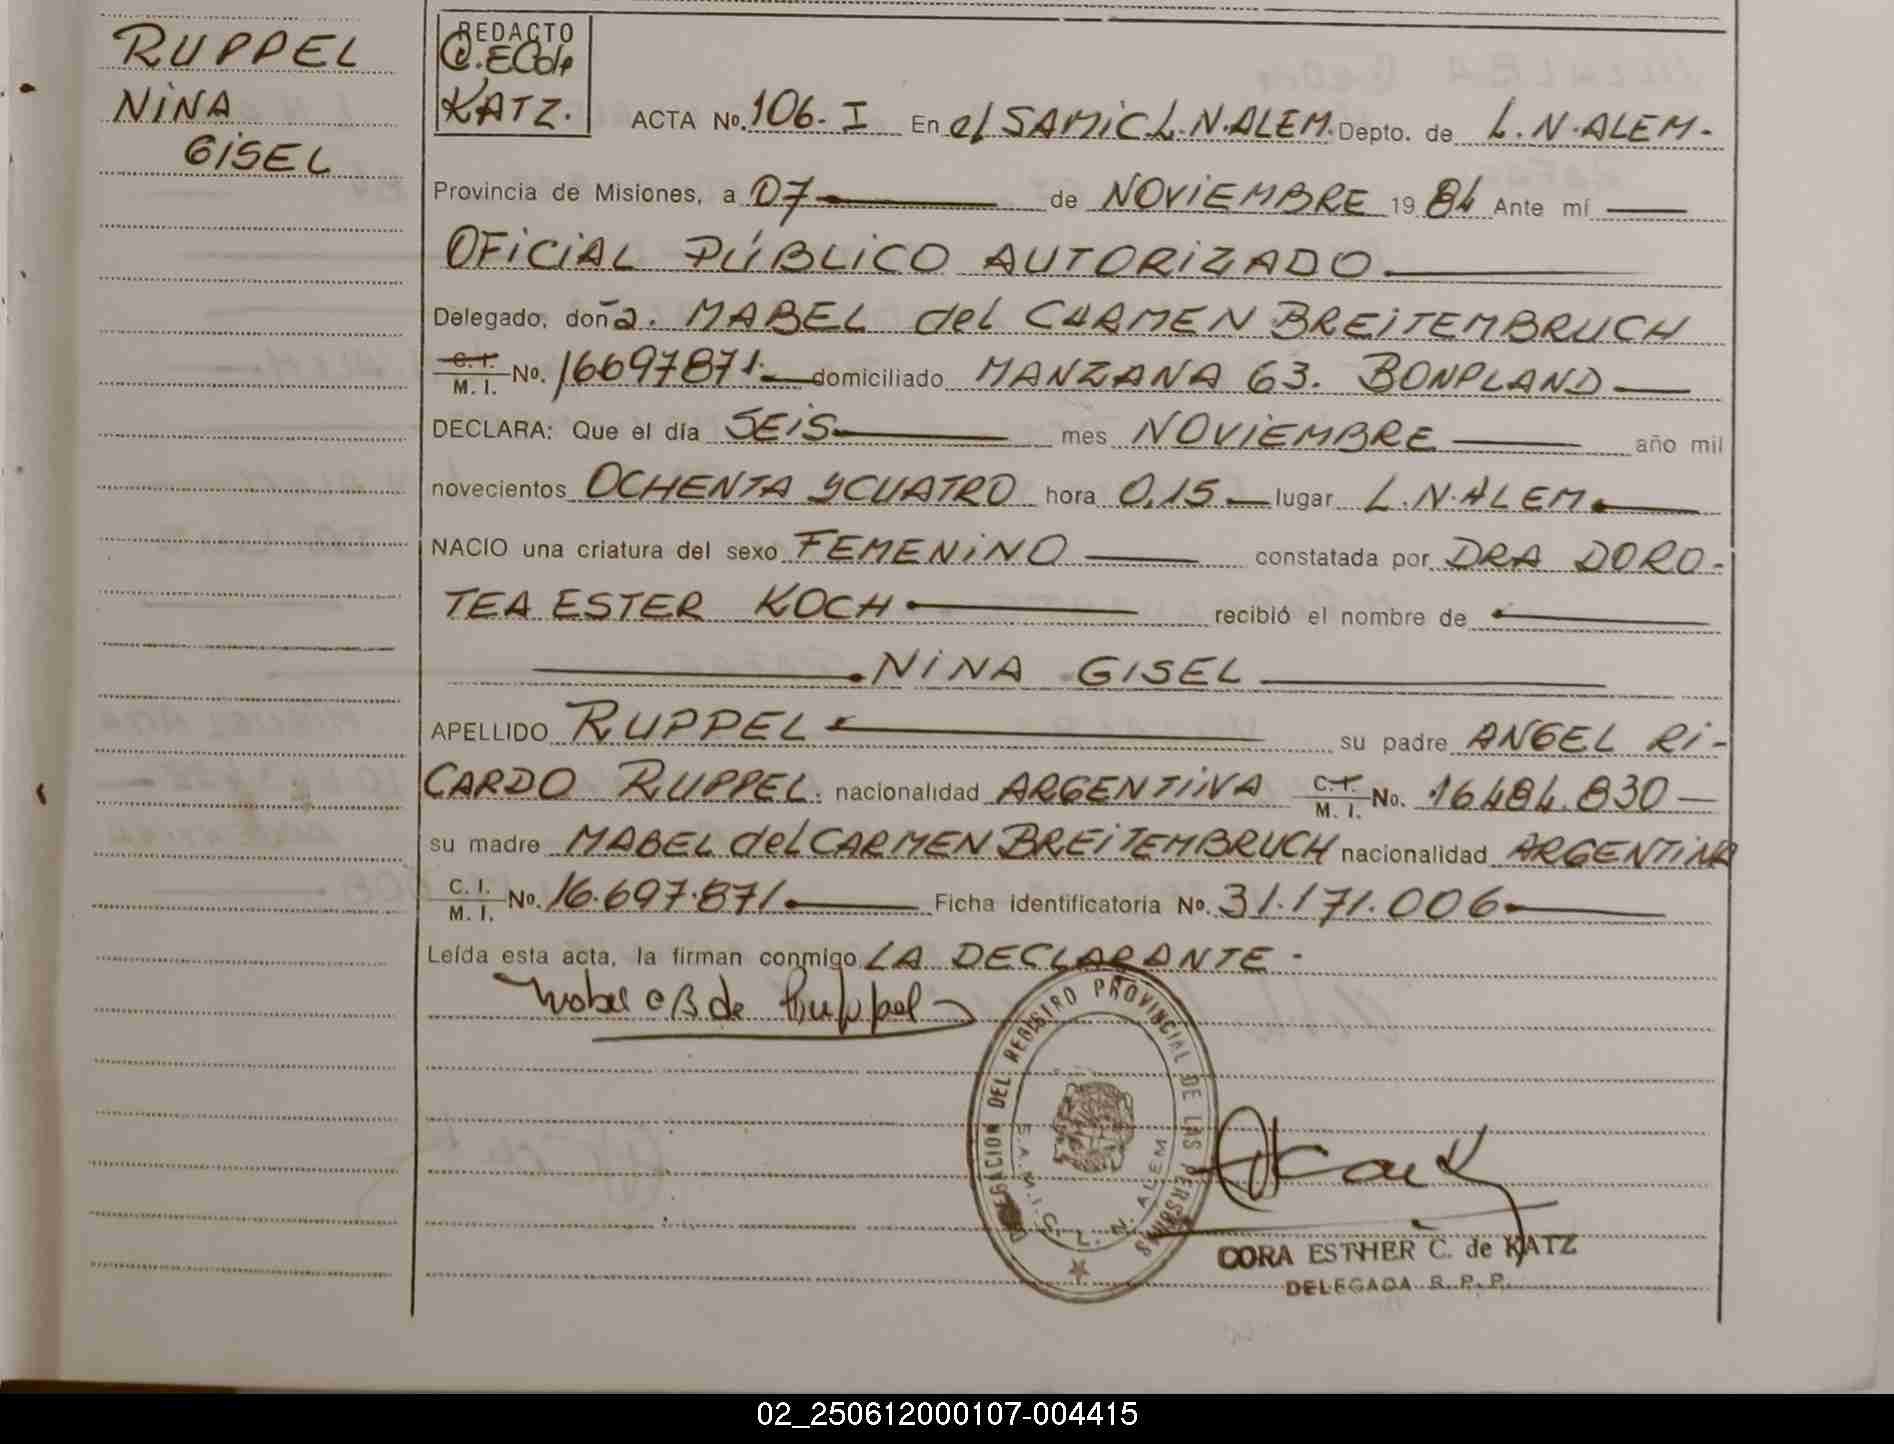 RUPPEL
NINA
GISEL
REDACTO
C. E C de
KATZ.
ACTA No. 106. I En el SAMIC L.N.ALEM. Depto. de L.N.ALEM.
Provincia de Misiones, a 07 de NOVIEMBRE 1984 Ante mí
OFICIAL PÚBLICO AUTORIZADO
Delegado, doña. MABEL del CARMEN BREITEMBRUCH
C.I. M.I. No. 16697871. domiciliado MANZANA 63. BONPLAND
DECLARA: Que el día SEIS mes NOVIEMBRE año mil
novecientos OCHENTA Y CUATRO hora 0,15 lugar L.N.ALEM
NACIO una criatura del sexo FEMENINO constatada por DRA DORO-
TEA ESTER KOCH recibió el nombre de
NINA GISEL
APELLIDO RUPPEL su padre ANGEL RI-
CARDO RUPPEL. nacionalidad ARGENTINA C.I. M.I. No. 16.484.830
su madre MABEL del CARMEN BREITEMBRUCH nacionalidad ARGENTINA
C.I. M.I. No. 16.697.871 Ficha identificatoria No. 31.171.006
Leída esta acta, la firman conmigo LA DECLARANTE.
Mabel C B de Ruppel
DELEGACION DEL REGISTRO PROVINCIAL DE LAS PERSONAS
S.A.M.I.C. L. N. ALEM
CORA ESTHER C. de KATZ
DELEGADA R. P. P.
02_250612000107-004415